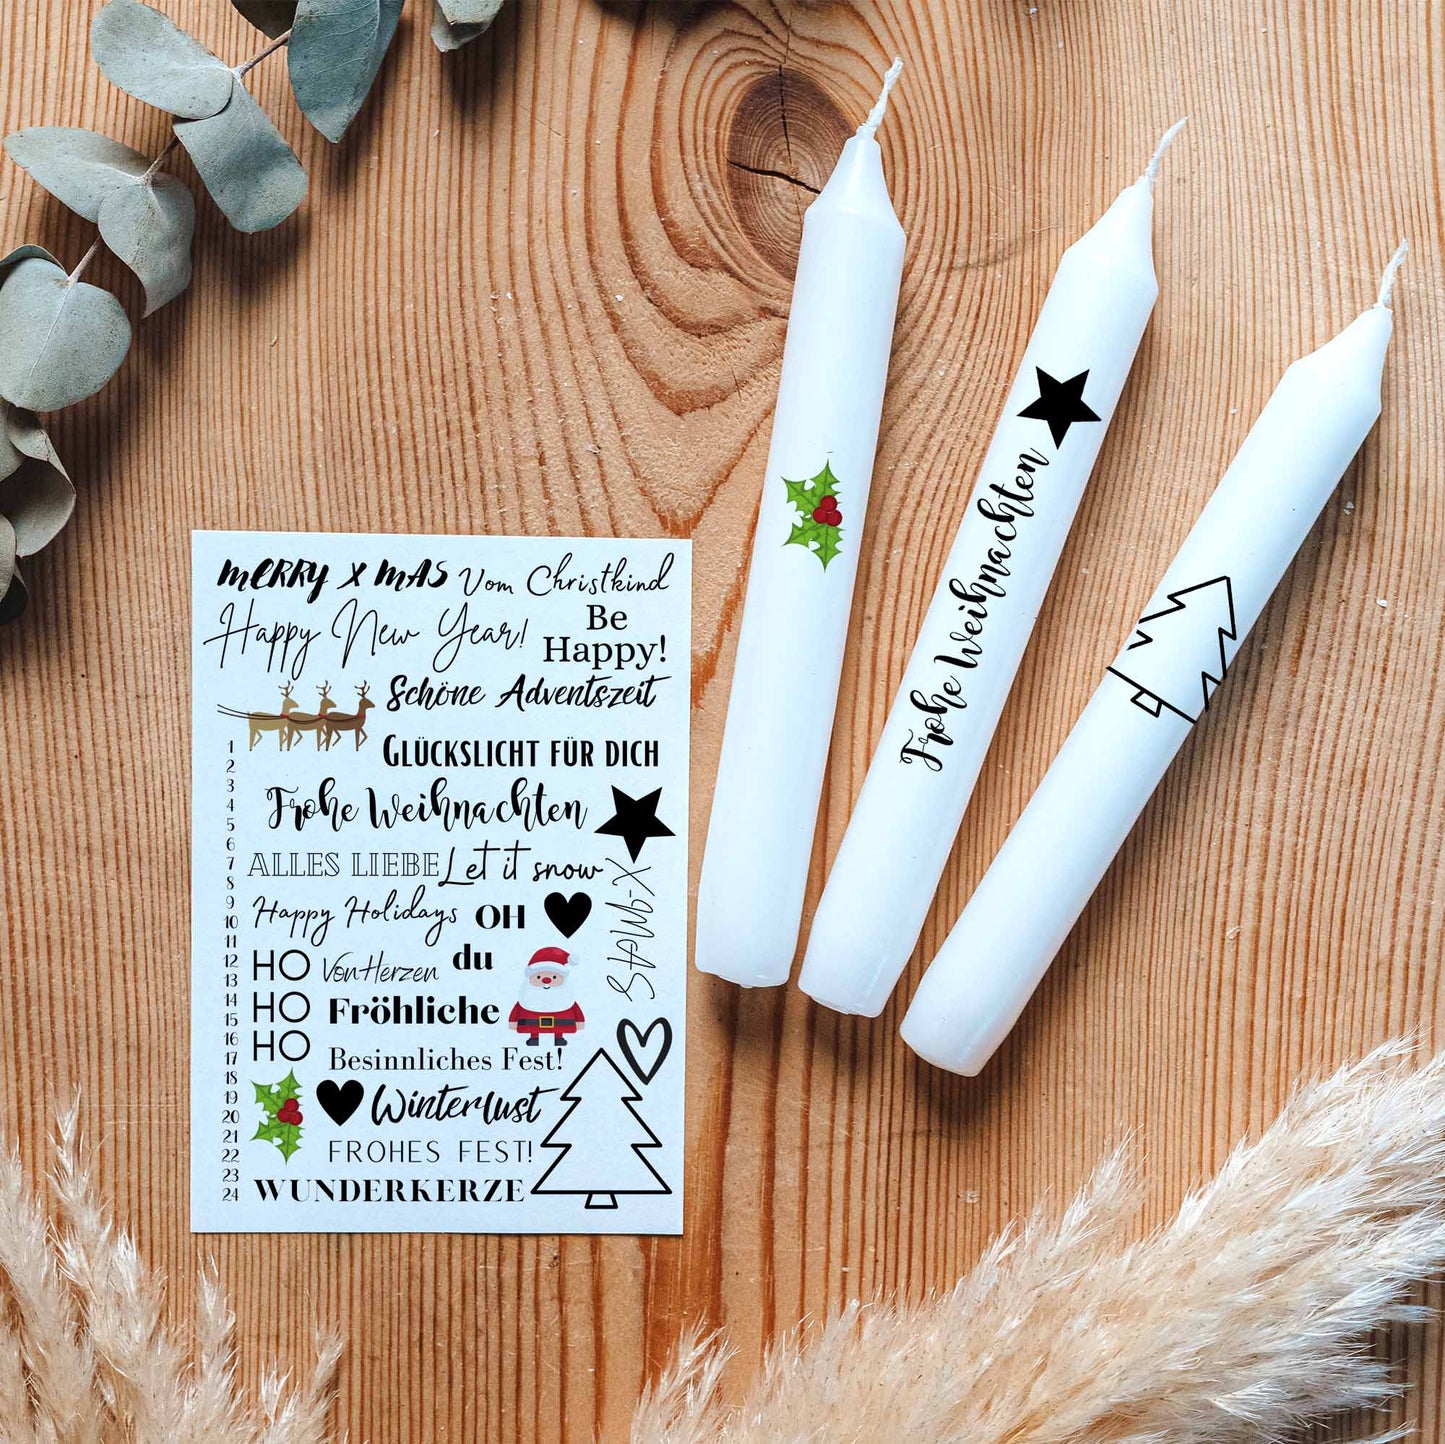 MERRY X MAS Vom Christkind
Happy New Year!
Be
Happy!
Schöne Adventszeit
GLÜCKSLICHT FÜR DICH
Frohe Weihnachten
ALLES LIEBE Let it snow
Happy Holidays OH
du
HO Von Herzen
HO Fröhliche
HO
Besinnliches Fest!
Winterlust
FROHES FEST!
WUNDERKERZE
X-MAS
1
2
3
4
5
6
7
8
9
10
11
12
13
14
15
16
17
18
19
20
21
22
23
24
Frohe Weihnachten